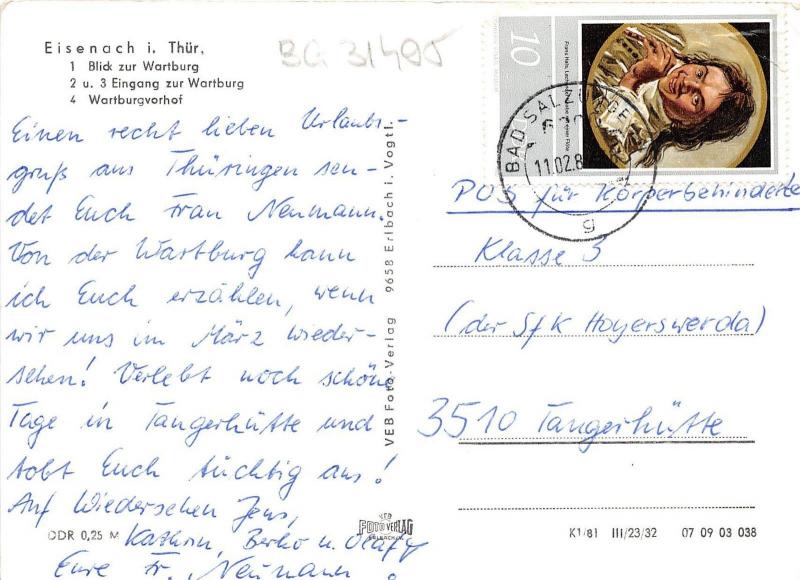 Eisenach i. Thür.
1 Blick zur Wartburg
2 u. 3 Eingang zur Wartburg
4 Wartburgvorhof
BG 31495
Einen recht lieben Urlaubs-
gruß aus Thüringen sen-
det Euch Frau Neumann.
Von der Wartburg kann
ich Euch erzählen, wenn
wir uns im März wieder-
sehen! Verlebt noch schöne
Tage in Tangerhütte und
tobt Euch tüchtig aus!
Auf Wiedersehen Jens,
Kathrin, Berko u. Olaf
Eure Fr. Neumann!
DDR 0,25 M
VEB Foto-Verlag 9658 Erlbach i. Vogtl.
VEB
FOTO VERLAG
ERLBACH
10
Frans Hals,
BAD SALZUNGEN
11.02.8
g
POS für Körperbehinderte
Klasse 3
(der SfK Hoyerswerda)
3510 Tangerhütte
K1/81 III/23/32 07 09 03 038